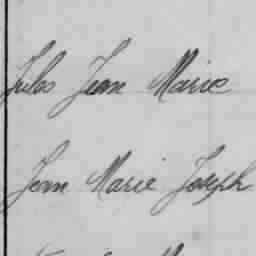 Jules Jean Marie
Jean Marie Joseph